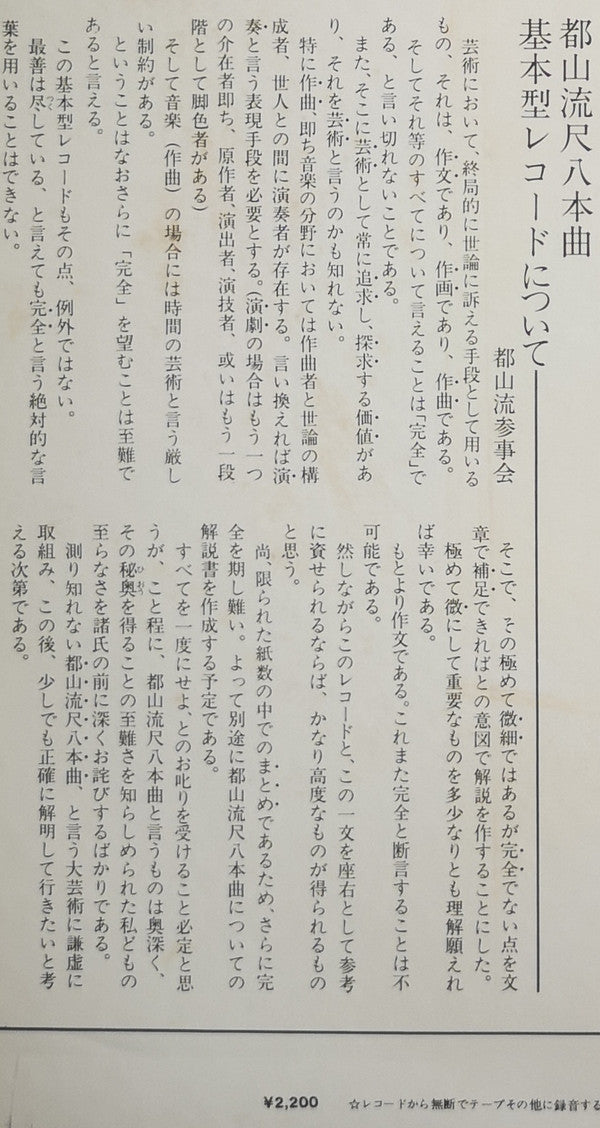 都山流尺八本曲
基本型レコードについて
都山流参事会
芸術において、終局的に世論に訴える手段として用いる
もの、それは、作文であり、作画であり、作曲である。
そしてそれ等のすべてについて言えることは「完全」で
ある、と言い切れないことである。
また、そこに芸術として常に追求し、探求する価値があ
り、それを芸術と言うのかも知れない。
特に作曲、即ち音楽の分野においては作曲者と世論の構
成者、世人との間に演奏者が存在する。言い換えれば演
奏と言う表現手段を必要とする。(演劇の場合はもう一つ
の介在者即ち、原作者、演出者、演技者、或いはもう一段
階として脚色者がある)
そして音楽(作曲)の場合には時間の芸術と言う厳し
い制約がある。
ということはなおさらに「完全」を望むことは至難で
あると言える。
この基本型レコードもその点、例外ではない。
最善は尽つくしている、と言えても完全と言う絶対的な言
葉を用いることはできない。
そこで、その極めて微細ではあるが完全でない点を文
章で補足できればとの意図で解説を作することにした。
極めて微にして重要なものを多少なりとも理解願えれ
ば幸いである。
もとより作文である。これまた完全と断言することは不
可能である。
然しながらこのレコードと、この一文を座右として参考
に資せられるならば、かなり高度なものが得られるもの
と思う。
尚、限られた紙数の中でのまとめであるため、さらに完
全を期し難い。よって別途に都山流尺八本曲についての
解説書を作成する予定である。
すべてを一度にせよ、とのお叱りを受けること必定と思
うが、こと程に、都山流尺八本曲と言うものは奥深く、
その秘奥ひおうを得ることの至難さを知らしめられた私どもの
至らなさを諸氏の前に深くお詫びするばかりである。
測り知れない都山流尺八本曲、と言う大芸術に謙虚に
取組み、この後、少しでも正確に解明して行きたいと考
える次第である。
¥2,200
☆レコードから無断でテープその他に録音する